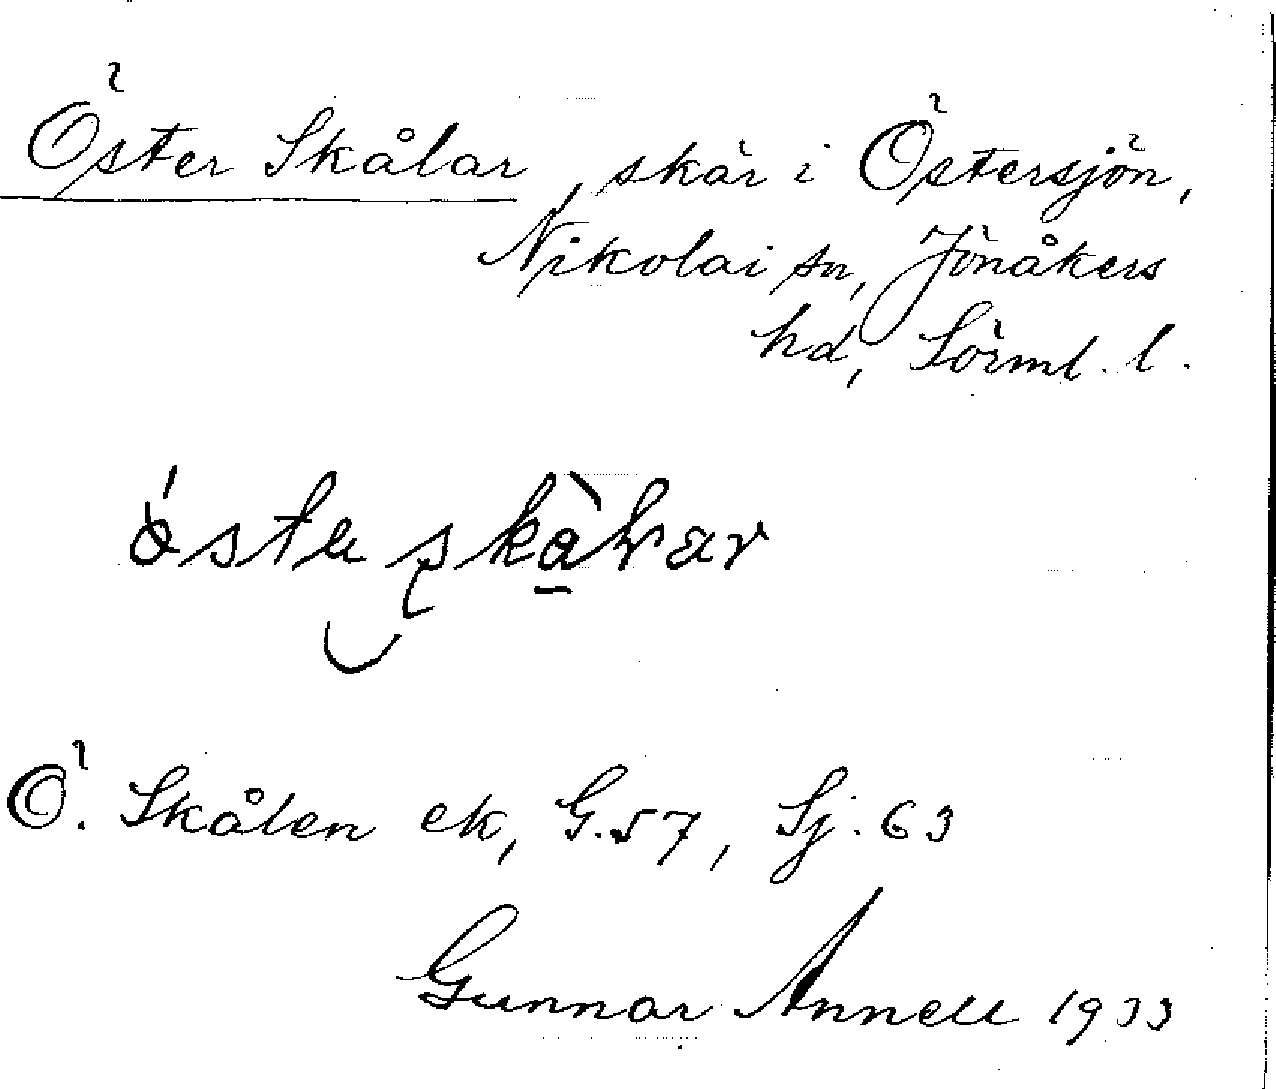 Öster Skålar, skär i Östersjön,
Nikolai sn, Jönåkers
hd, Sörml. l.
Ö. Skålen ek, G.57, Sj. 63
Gunnar Annell 1933